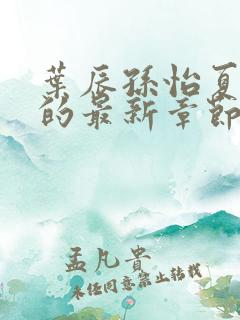 葉辰孫怡夏
的最新章節
孟凡貴
未經同意禁止轉載